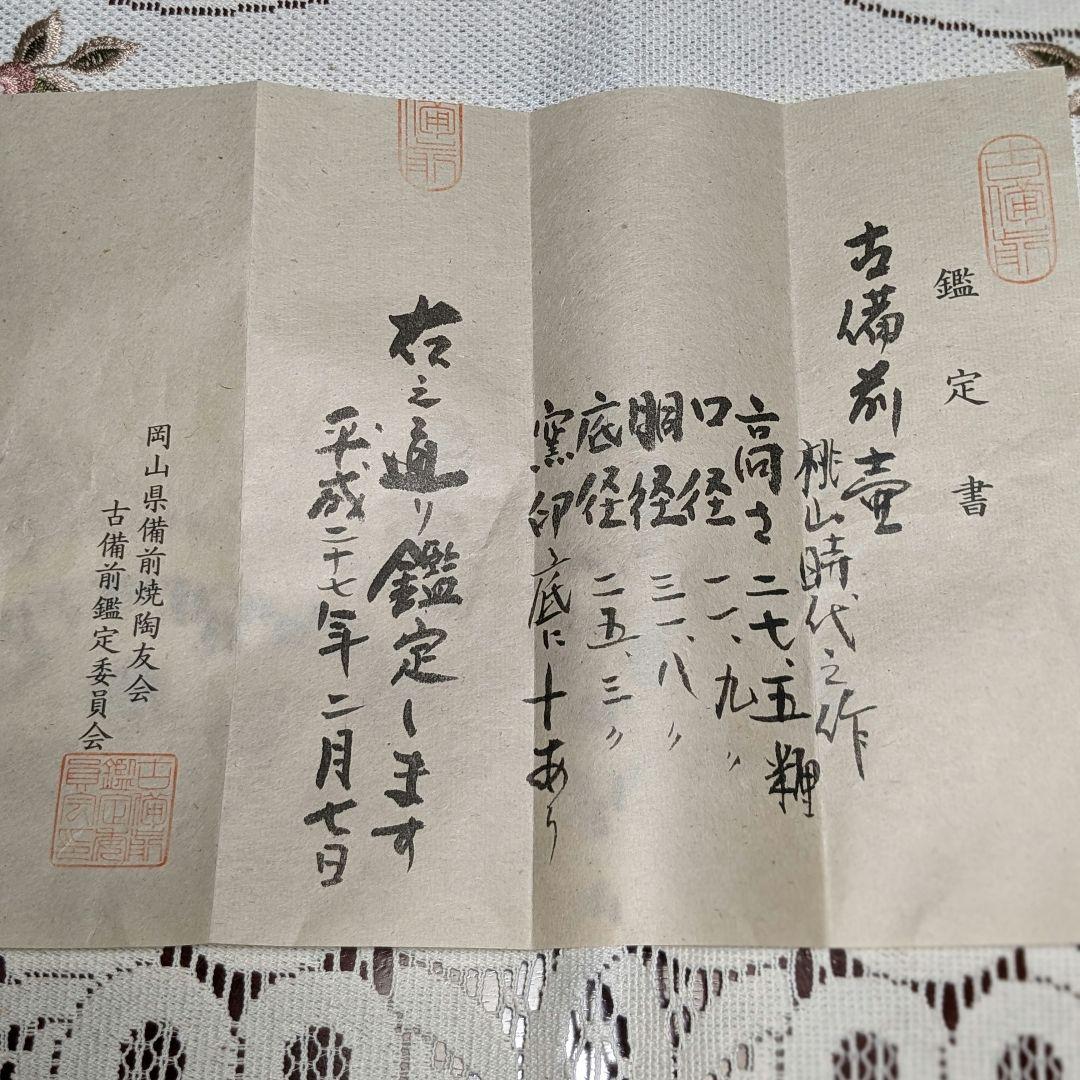 古備前
鑑定書
古備前壷
桃山時代之作
高さ 二七、五糎
口径 一一、九〃
胴径 三一、八〃
底径 二五、三〃
窯印 底に十あり
備前
右之通り鑑定します
平成二十七年二月七日
岡山県備前焼陶友会
古備前鑑定委員会